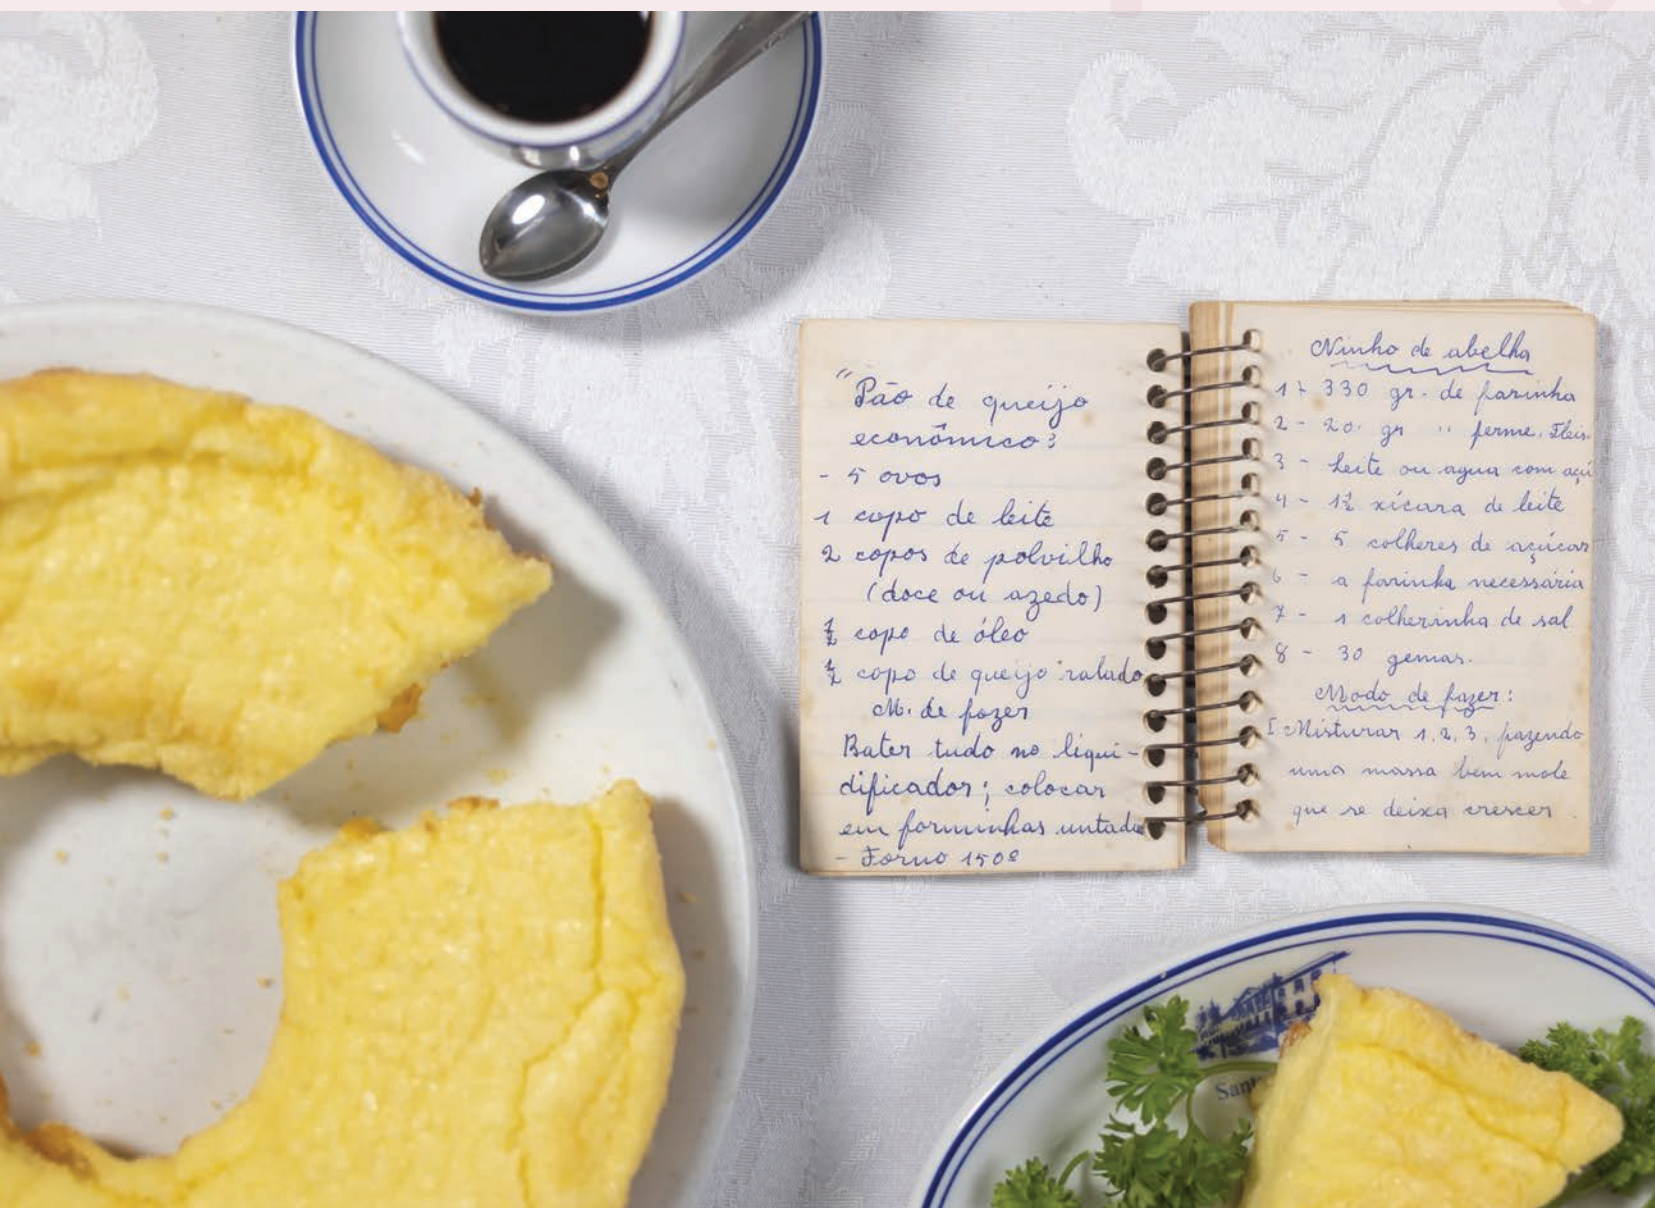 "Pão de queijo
econômico:
- 5 ovos
1 copo de leite
2 copos de polvilho
(doce ou azedo)
½ copo de óleo
½ copo de queijo ralado
M. de fazer
Bater tudo no liqui-
dificador; colocar
em forminhas untada
- Forno 150º
Ninho de abelha
1 - 330 gr. de farinha
2 - 20. gr " ferme. Fleis.
3 - Leite ou agua com açú
4 - 1½ xícara de leite
5 - 5 colheres de açúcar
6 - a farinha necessária
7 - 1 colherinha de sal
8 - 30 gemas.
Modo de fazer:
I Misturar 1, 2, 3, fazendo
uma massa bem mole
que se deixa crescer.